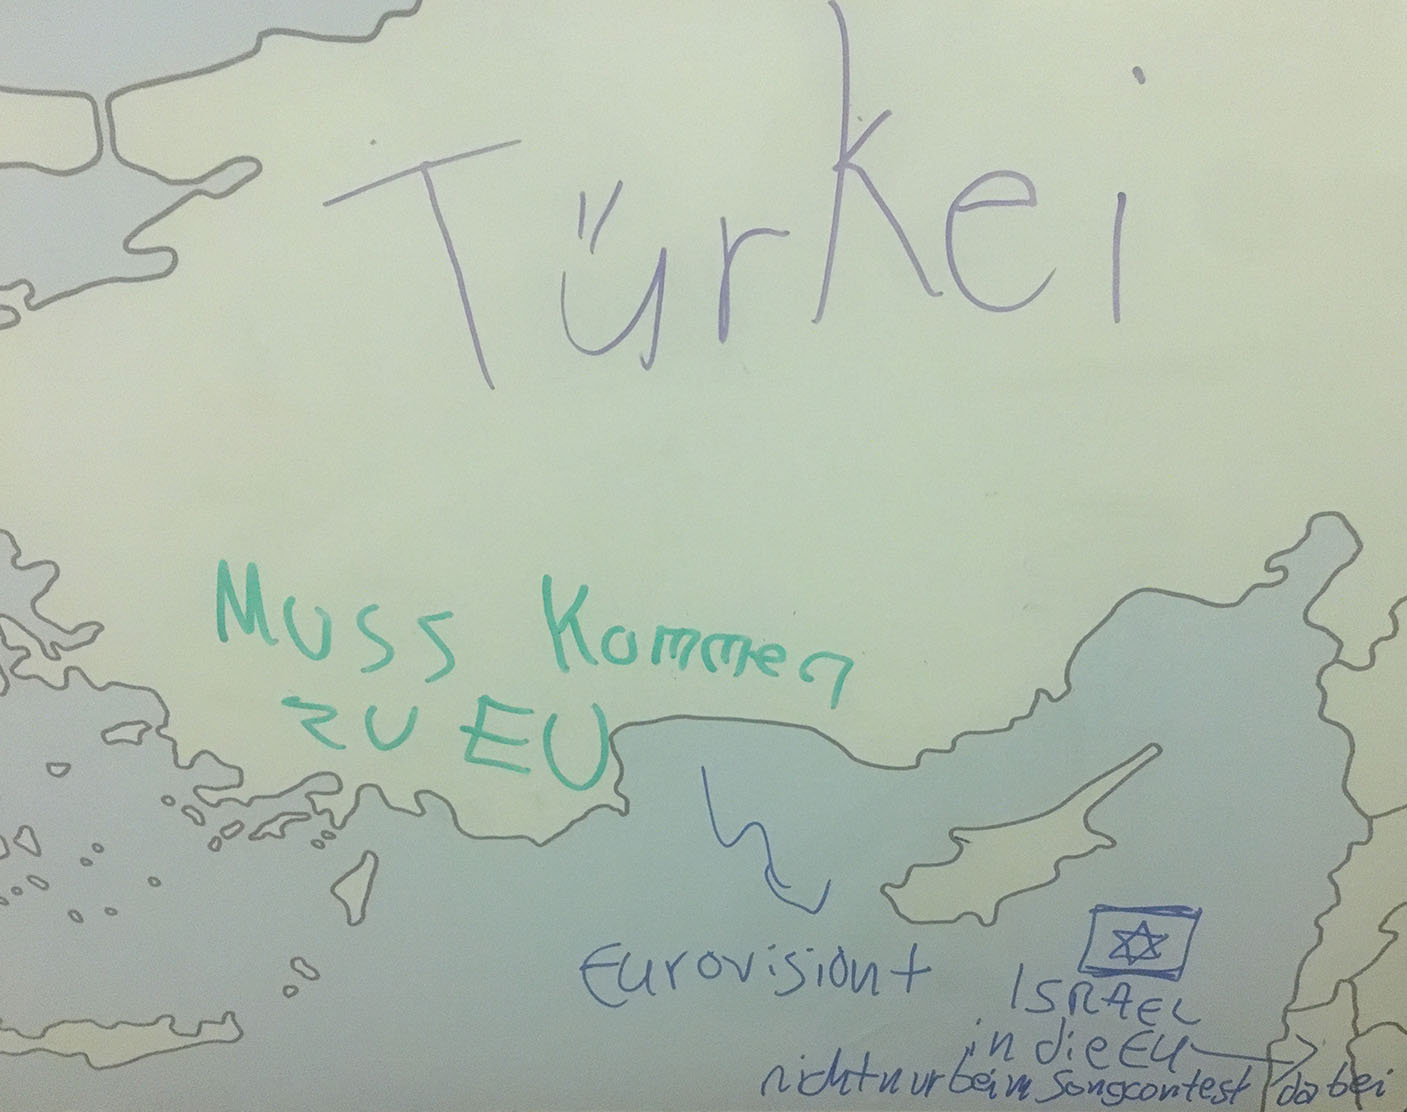 Türkei
Muss Kommen
zu EU
Eurovision +
ISRAEL
in die EU
nicht nur beim Songcontest dabei